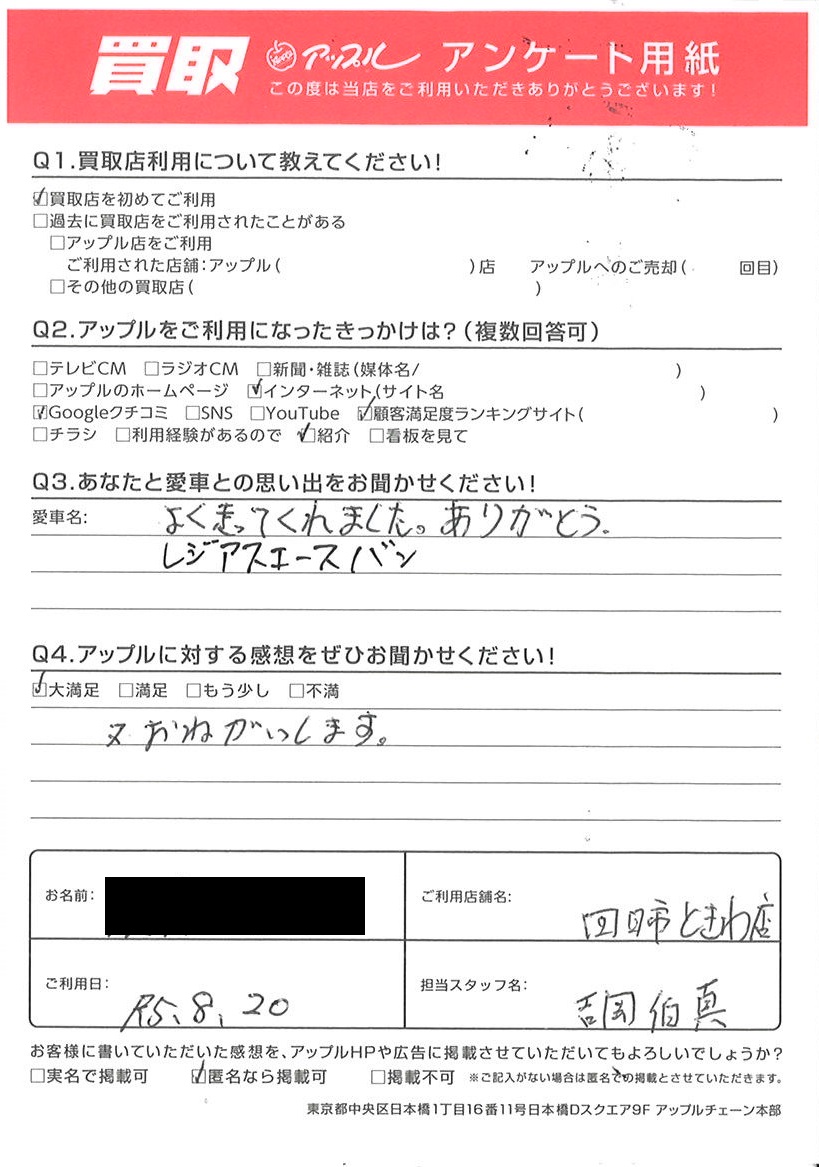 買取 アップル アンケート用紙
この度は当店をご利用いただきありがとうございます！
Q1.買取店利用について教えてください！
☑買取店を初めてご利用
□過去に買取店をご利用されたことがある
□アップル店をご利用
ご利用された店舗：アップル（ ）店 アップルへのご売却（ 回目）
□その他の買取店（ ）
Q2.アップルをご利用になったきっかけは？（複数回答可）
□テレビCM □ラジオCM □新聞・雑誌（媒体名/ ）
□アップルのホームページ ☑インターネット（サイト名 ）
☑Googleクチコミ □SNS □YouTube ☑顧客満足度ランキングサイト（ ）
□チラシ □利用経験があるので ☑紹介 □看板を見て
Q3.あなたと愛車との思い出をお聞かせください！
愛車名： よく走ってくれました。ありがとう。
レジアスエースバン
Q4.アップルに対する感想をぜひお聞かせください！
☑大満足 □満足 □もう少し □不満
又おねがいします。
お名前：
ご利用店舗名： 四日市ときわ店
ご利用日： R5、8、20
担当スタッフ名： 吉岡 伯真
お客様に書いていただいた感想を、アップルHPや広告に掲載させていただいてもよろしいでしょうか？
□実名で掲載可 ☑匿名なら掲載可 □掲載不可 ※ご記入がない場合は匿名での掲載とさせていただきます。
東京都中央区日本橋1丁目16番11号日本橋Dスクエア9F アップルチェーン本部